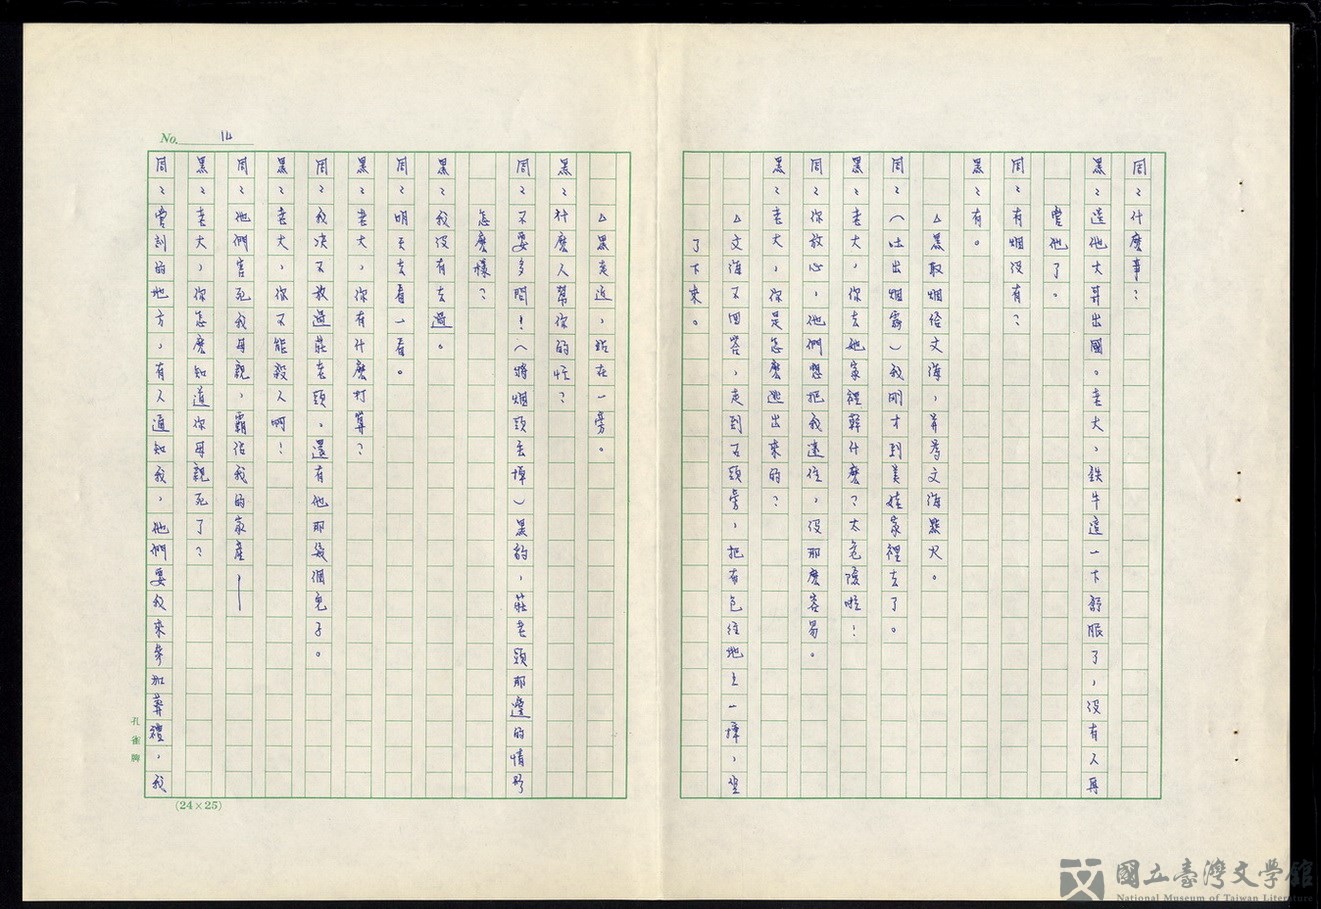 周：什麼事？
黑：造他大哥出國。老大，鉄牛這一下舒服了，沒有人再
管他了。
周：有烟沒有？
黑：有。
△黑取烟给文海，并為文海點火。
周：（吐出烟霧）我刚才到美娃家裡去了。
黑：老大，你去她家裡幹什麼？太危險啦！
周：你放心，他們想把我逮住，沒那麼容易。
黑：老大，你是怎麼逃出來的？
△文海不回答，走到石頭旁，把布包往地上一摔，坐
了下來。
△黑走近，站在一旁。
黑：什麼人幫你的忙？
周：不要多問！（將烟頭丢掉）黑豹，莊老頭那邊的情形
怎麼樣？
黑：我沒有去過。
周：明天去看一看。
黑：老大，你有什麼打算？
周：我决不放過莊老頭，還有他那幾個兒子。
黑：老大，你不能殺人啊！
周：他們害死我母親，霸佔我的家產——
黑：老大，你怎麼知道你母親死了？
周：管訓的地方，有人通知我，他們要我來參加葬禮，我
No. 14
孔雀牌
(24×25)
國立臺灣文學館
National Museum of Taiwan Literature